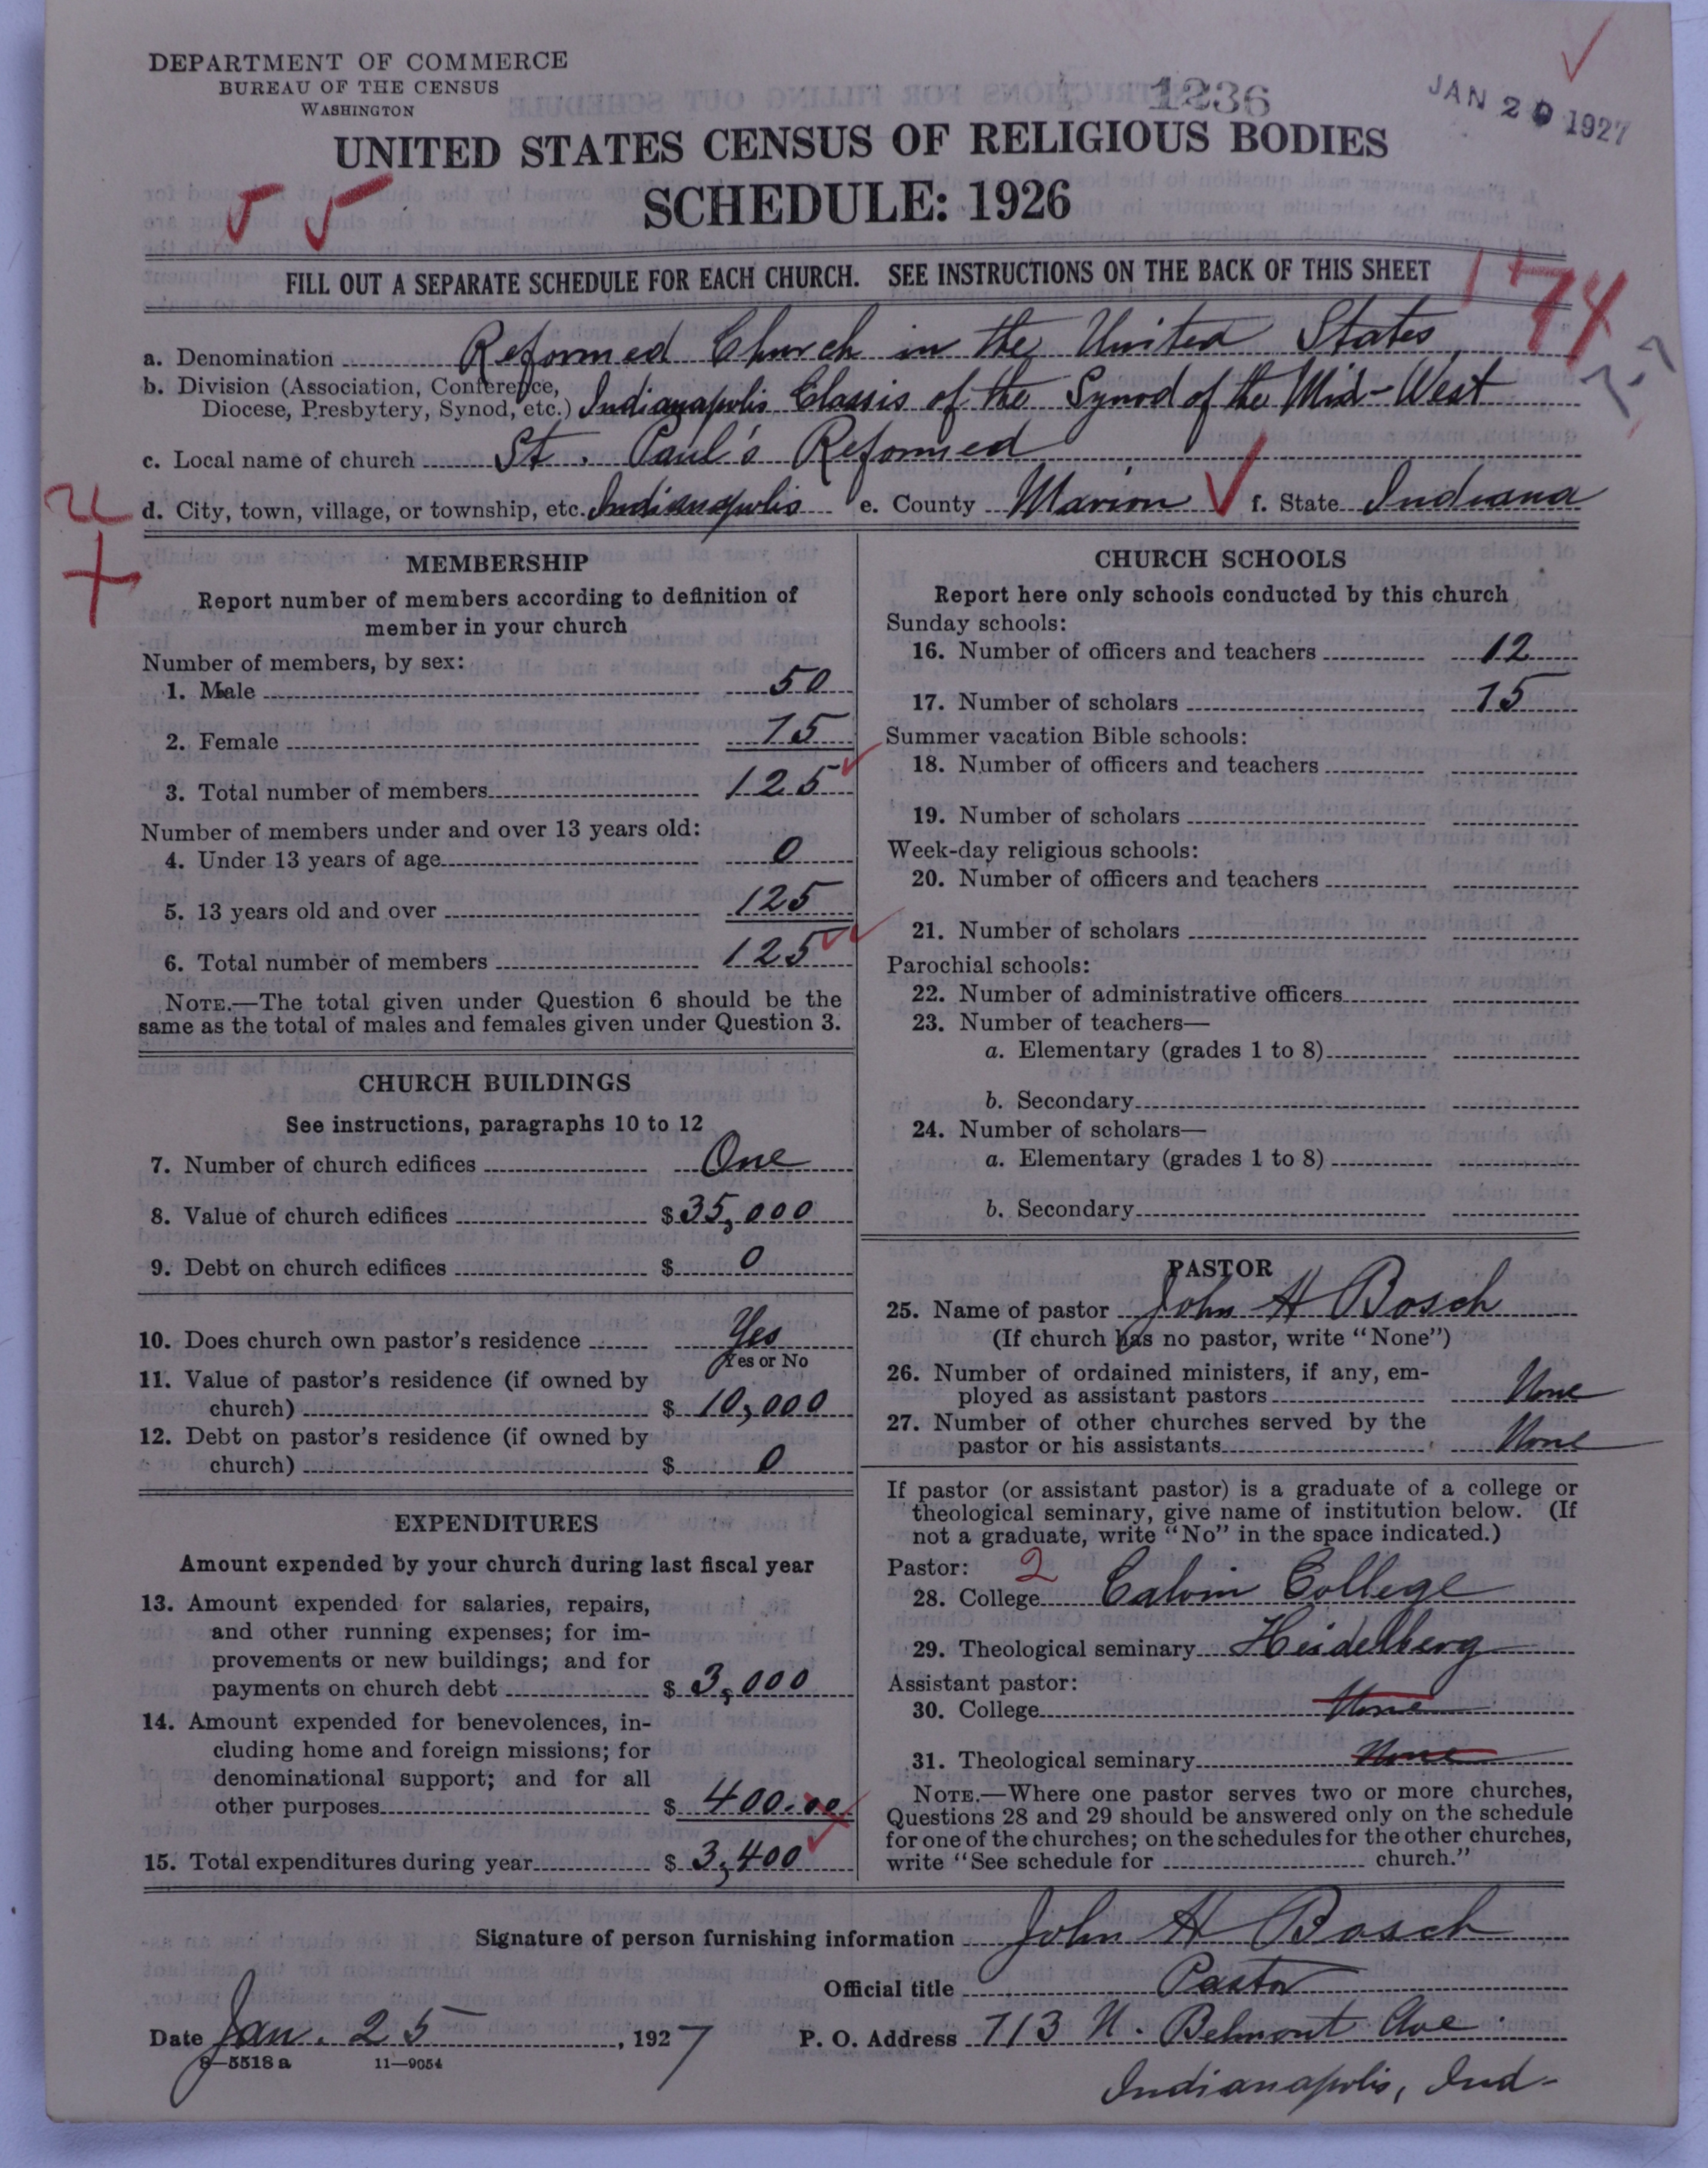 DEPARTMENT OF COMMERCE
BUREAU OF THE CENSUS
WASHINGTON
1236
JAN 29 1927
UNITED STATES CENSUS OF RELIGIOUS BODIES
SCHEDULE: 1926
55
FILL OUT A SEPARATE SCHEDULE FOR EACH CHURCH. SEE INSTRUCTIONS ON THE BACK OF THIS SHEET
174
a. Denomination Reformed Church in the United States
b. Division (Association, Conference,
Diocese, Presbytery, Synod, etc.) Indianapolis Classis of the Synod of the Mid-West
c. Local name of church St. Paul's Reformed
d. City, town, village, or township, etc. Indianapolis e. County Marion f. State Indiana
MEMBERSHIP
Report number of members according to definition of
member in your church
Number of members, by sex:
1. Male 50
2. Female 75
3. Total number of members 125
Number of members under and over 13 years old:
4. Under 13 years of age 0
5. 13 years old and over 125
6. Total number of members 125
NOTE.—The total given under Question 6 should be the
same as the total of males and females given under Question 3.
CHURCH BUILDINGS
See instructions, paragraphs 10 to 12
7. Number of church edifices One
8. Value of church edifices $35,000
9. Debt on church edifices $ 0
10. Does church own pastor's residence Yes
Yes or No
11. Value of pastor's residence (if owned by
church) $ 10,000
12. Debt on pastor's residence (if owned by
church) $ 0
EXPENDITURES
Amount expended by your church during last fiscal year
13. Amount expended for salaries, repairs,
and other running expenses; for im-
provements or new buildings; and for
payments on church debt $ 3,000
14. Amount expended for benevolences, in-
cluding home and foreign missions; for
denominational support; and for all
other purposes $ 400.00
15. Total expenditures during year $ 3,400
CHURCH SCHOOLS
Report here only schools conducted by this church
Sunday schools:
16. Number of officers and teachers 12
17. Number of scholars 75
Summer vacation Bible schools:
18. Number of officers and teachers
19. Number of scholars
Week-day religious schools:
20. Number of officers and teachers
21. Number of scholars
Parochial schools:
22. Number of administrative officers
23. Number of teachers—
a. Elementary (grades 1 to 8)
b. Secondary
24. Number of scholars—
a. Elementary (grades 1 to 8)
b. Secondary
PASTOR
25. Name of pastor John H Bosch
(If church has no pastor, write "None")
26. Number of ordained ministers, if any, em-
ployed as assistant pastors None
27. Number of other churches served by the
pastor or his assistants None
If pastor (or assistant pastor) is a graduate of a college or
theological seminary, give name of institution below. (If
not a graduate, write "No" in the space indicated.)
Pastor: 2
28. College Calvin College
29. Theological seminary Heidelberg
Assistant pastor:
30. College None
31. Theological seminary None
NOTE.—Where one pastor serves two or more churches,
Questions 28 and 29 should be answered only on the schedule
for one of the churches; on the schedules for the other churches,
write "See schedule for church."
Signature of person furnishing information John H Bosch
Official title Pastor
Date Jan. 25, 1927 P. O. Address 713 N. Belmont Ave.
8—5518 a 11—9054
Indianapolis, Ind-